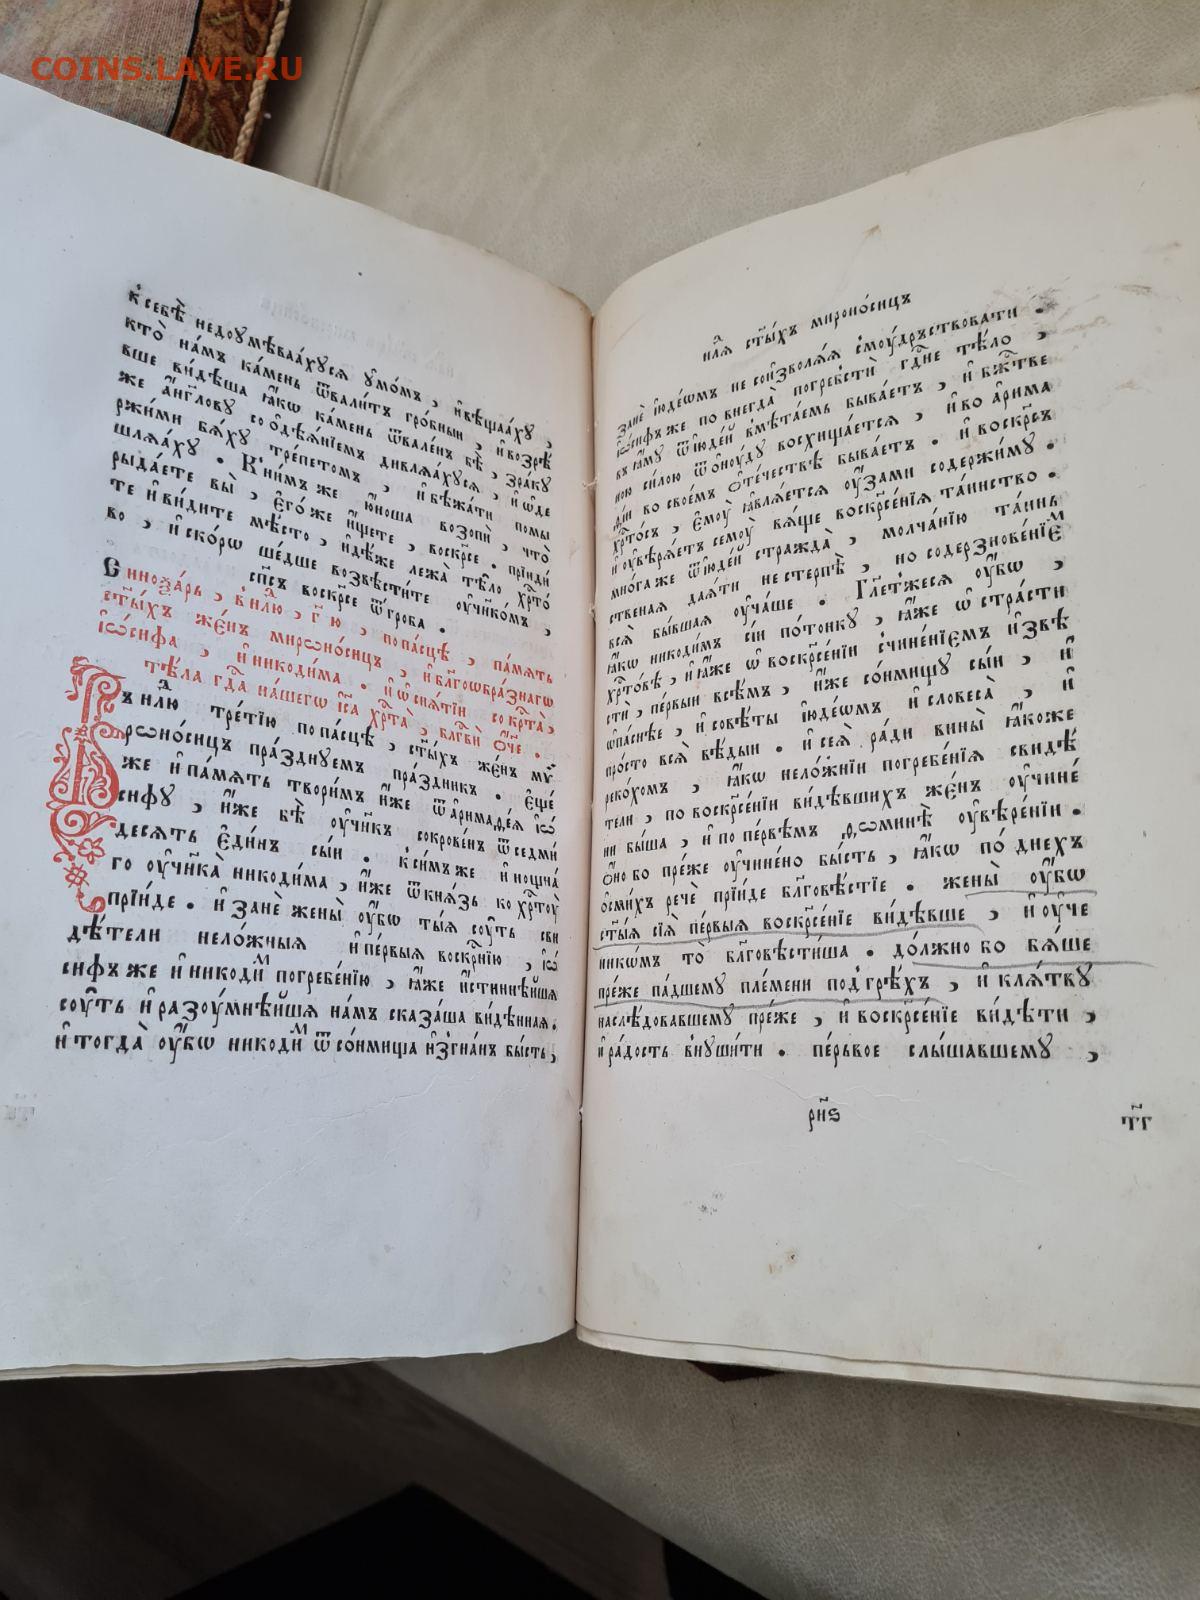 COINS.LAVE.RU
к̾ себѣ̀ недоꙋмѣваа́хꙋсѧ ᲂу҆мо́мъ , и҆вѣща́хꙋ ,
кто̀ на́мъ ка́мень ѿвали́тъ гро́бныи , и҆возрѣ
вше ви́дѣша ꙗ҆́кѡ ка́мень ѿвале́нъ бѣ̀ , зра́кꙋ
же а҆́нг҃лову со ѻ҆дѣѧ́нїемъ дивлѧ́хꙋсѧ , и҆ѡ҆де
ржи́ми бѧ́хꙋ тре́петомъ , и҆бѣжа́ти помы
шлѧ́хꙋ . К̾ни́мъ же ю҆́ноша возопѝ , что̀
рыда́ете вы̀ , є҆го́ же и҆́щете , воскр҃се . прїиди́
те и҆ ви́дите мѣ́сто , и҆дѣ́же лежа̀ тѣ́ло хр҃то́
во , и҆ ско́рѡ ше́дше возвѣсти́те ᲂу҆чн҃кѡ́мъ ,
сп҃съ воскр҃се ѿ гро́ба .
Сѷноѯа́рь , в̾ н҃лю , г҃ю , по па́сцѣ , па́мѧть
ст҃ы́хъ же́нъ мѵрѡно́сицъ , и҆ бл҃гоѡбра́знагѡ
і҆ѡ́сифа , и҆ никоди́ма . и҆ ѡ҆ снѧ́тїи со кр҃та̀ ,
тѣ́ла гд҃а на́шегѡ і҆с҃а хр҃та̀ , бл҃гвѝ ѻ҆́ч҃е .
Въ н҃лю тре́тїю по па́сцѣ , ст҃ы́хъ же́нъ мѵ
рѡно́сицъ пра́зднꙋемъ пра́здникъ . є҆ще́
же и҆ па́мѧть твори́мъ и҆́же ѿ а҆римаѳе́ѧ і҆ѡ́
сифꙋ , и҆́же бѣ̀ ᲂу҆чн҃къ сокрове́нъ ѿ седми́
десѧтъ є҆ди́нъ сы́и . к̾ си́мъ же и҆ нощна́
го ᲂу҆чн҃ка̀ никоди́ма , и҆́же ѿ кнѧ́зь ко хр҃тꙋ̀
прїи́де . и҆ занѐ жены̀ ᲂу҆́бѡ ты́ѧ сꙋ́ть сви
дѣ́тели нело́жныѧ и҆ пе́рвыѧ воскр҃нїю , і҆ѡ́
сифъ же и҆ никоди́м погребе́нїю , ꙗ҆́же и҆́стиннѣйшѧ
сꙋ́ть и҆ разꙋ́мнѣйшѧ на́мъ сказа́ша ви́дѣннаѧ .
и҆ тогда̀ ᲂу҆́бѡ никоди́м ѿ со́нмища и҆згна́нъ бы́сть ,
н҃лѧ ст҃ы́хъ мироно́сицъ
занѐ і҆юде́ѡмъ не соизволѧ́ѧ с̾мꙋ́дръствовати .
і҆ѡ́сифъ же по внегда̀ погребстѝ гд҃не тѣ́ло ,
въ ꙗ҆́мꙋ ѿ і҆юде́й вмѣта́емь быва́етъ , и҆ бж҃тве
ною си́лою ѿѻ҆нꙋ́дꙋ восхища́етсѧ , и҆ во а҆рима
ѳі́и во свое́мъ ѻ҆те́чествѣ быва́етъ . и҆ воскр҃съ
хр҃то́съ , є҆мꙋ̀ ꙗ҆влѧ́етсѧ ᲂу҆́зами содержи́мꙋ .
и҆ ᲂу҆вѣрѧ́етъ семꙋ̀ вѧ́ще воскр҃се́нїѧ та́инство .
мно́га же ѿ і҆юде́й стражда̀ , молча́нїю та́йнъ
ственаѧ даѧ́ти не стерпѣ̀ , но со дерзнове́нїем
всѧ̀ бы́вшаѧ ᲂу҆ча́ше . Гл҃етжесѧ ᲂу҆́бѡ ,
ꙗ҆́кѡ никоди́мъ сі́и по то́нкꙋ , ꙗ҆́же ѡ҆ стра́сти
хр҃то́вѣ , и҆ ꙗ҆́же ѡ҆ воскр҃се́нїи с̾чине́нїемъ и҆звѣ
стѝ , пе́рвыи всѣ́мъ , и҆́же со́нмищꙋ сы́и , и҆
ѡ҆па́снѣе , и҆ совѣ́ты і҆юде́ѡмъ и҆ словеса̀ , и҆
про́сто всѧ̀ вѣ́дыи . и҆ сеѧ̀ ра́ди вины̀ ꙗ҆́коже
реко́хомъ , ꙗ҆́кѡ нело́жнїи погребе́нїѧ свидѣ́
тели , по воскр҃се́нїи ви́дѣвшихъ же́нъ ᲂу҆чине́
ни бы́ша , и҆ по пе́рвѣмъ ѳѡминѣ̀ ᲂу҆вѣ́ренїи .
ѻ҆но̀ бо пре́же ᲂу҆чине́но бы́сть , ꙗ҆́кѡ по́ днехъ
ѻ҆сми́хъ речѐ прїи́де бл҃говѣ́стїе . жены̀ ᲂу҆́бѡ
ст҃ы́ѧ сїѧ̀ пе́рвыѧ воскр҃се́нїе ви́дѣвше , и҆ ᲂу҆че
никѡ́мъ то̀ бл҃говѣсти́ша . до́лжно бо бѧ́ше
пре́же па́дшему пле́мени под̾ грѣ́хъ , и҆ клѧ́твꙋ
наслѣ́довавшемꙋ пре́же , и҆ воскр҃се́нїе ви́дѣти ,
и҆ ра́дость в̾нꙋши́ти . пе́рьвое слы́шавшемꙋ ,
рн҃ѕ
тп҃г